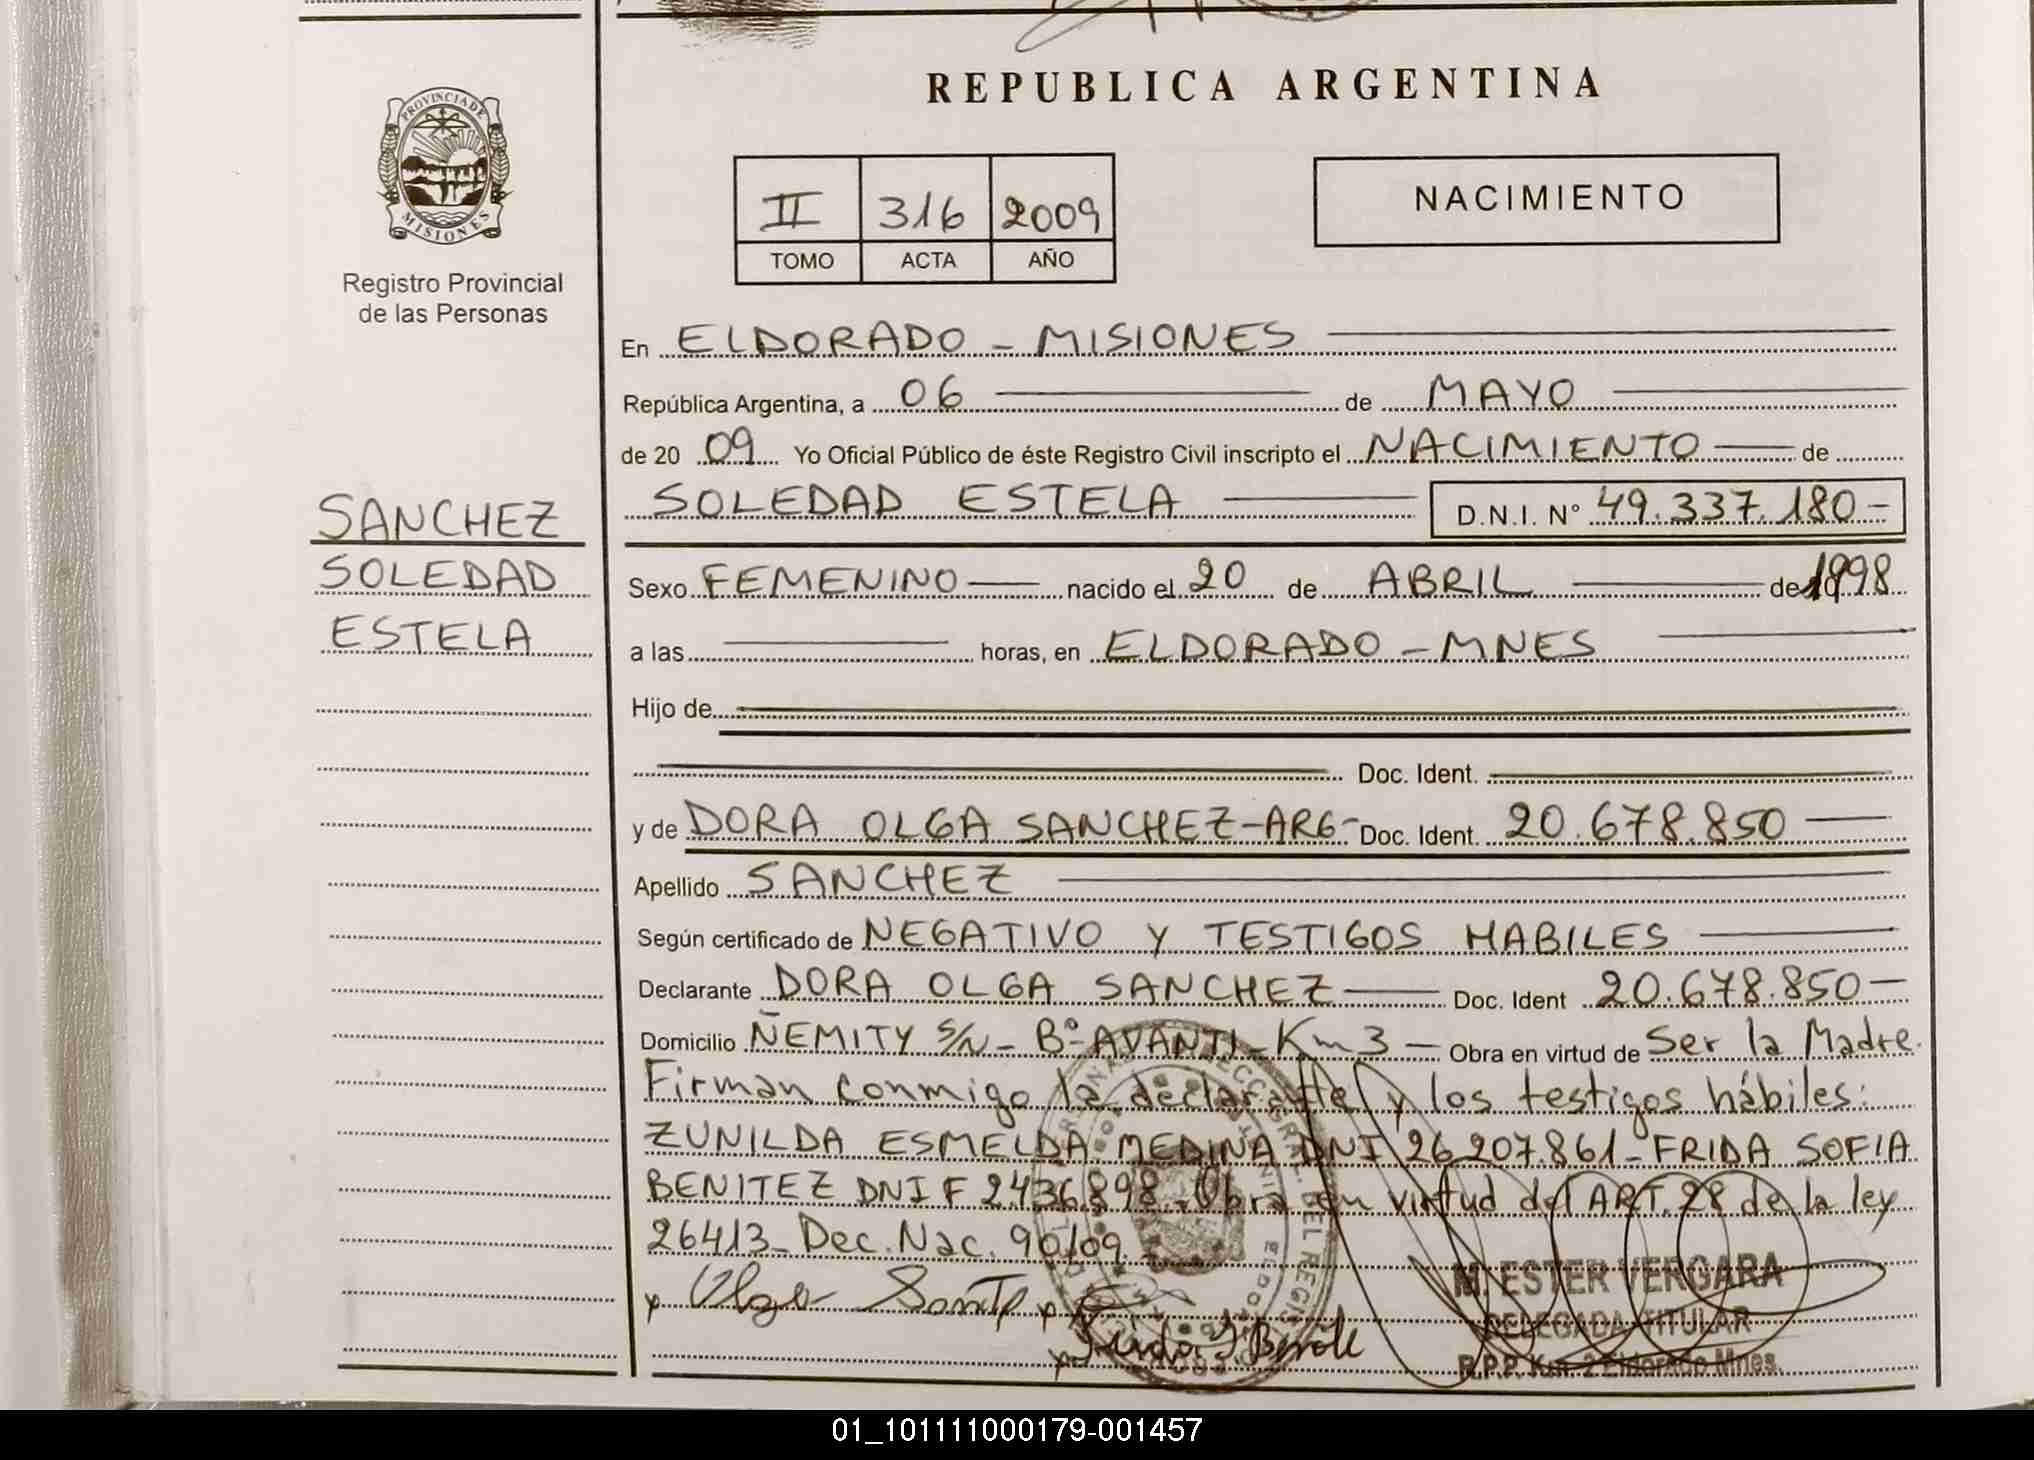 PROVINCIA DE
MISIONES
Registro Provincial
de las Personas
SANCHEZ
SOLEDAD
ESTELA
REPUBLICA ARGENTINA
II 316 2009
TOMO ACTA AÑO
NACIMIENTO
En ELDORADO - MISIONES
República Argentina, a 06 de MAYO
de 20 09 Yo Oficial Público de éste Registro Civil inscripto el NACIMIENTO de
SOLEDAD ESTELA D.N.I. N° 49.337.180-
Sexo FEMENINO nacido el 20 de ABRIL de 1998
a las horas, en ELDORADO - MNES
Hijo de
Doc. Ident.
y de DORA OLGA SANCHEZ-ARG- Doc. Ident. 20.678.850
Apellido SANCHEZ
Según certificado de NEGATIVO Y TESTIGOS HABILES
Declarante DORA OLGA SANCHEZ Doc. Ident 20.678.850-
Domicilio ÑEMITY S/N - B° AVANTI - Km 3 - Obra en virtud de Ser la Madre.
Firman conmigo la declarante y los testigos hábiles:
ZUNILDA ESMELDA MEDINA DNI 26.207.861 - FRIDA SOFIA
BENITEZ DNI F 2436.898 - Obra en virtud del ART. 28 de la ley
26413 - Dec. Nac. 90/09.
M. ESTER VERGARA
DELEGADA TITULAR
R.P.P. Km. 2 Eldorado Mnes.
01_101111000179-001457